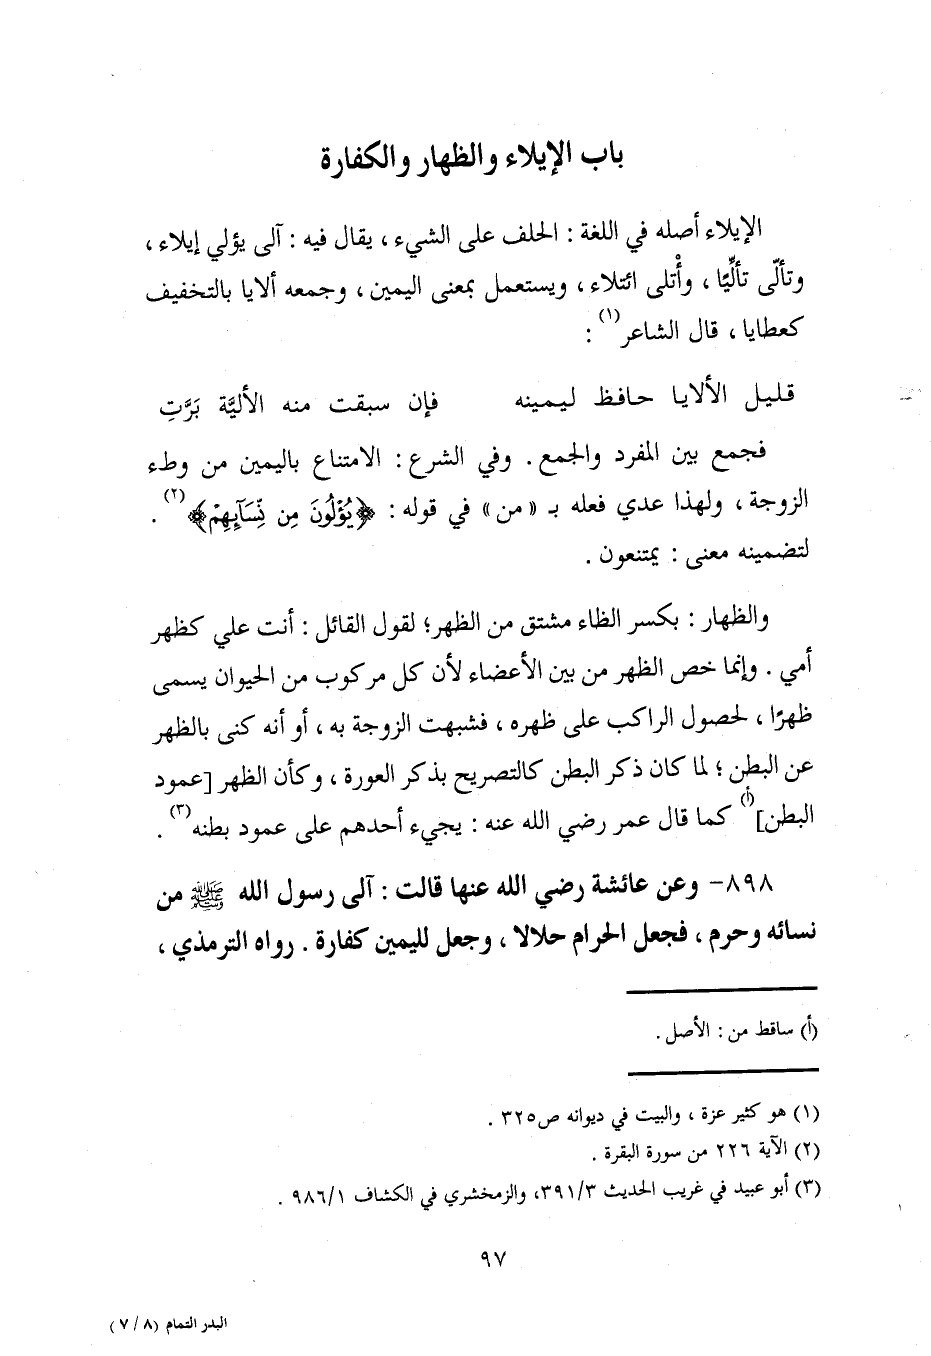 باب الإيلاء والظهار والكفارة
الإيلاء أصله في اللغة : الحلف على الشيء ، يقال فيه : آلى يؤلي إيلاء ،
وتألّى تألِّيًا ، وأْتلى ائتلاء ، ويستعمل بمعنى اليمين ، وجمعه ألايا بالتخفيف
كعطايا ، قال الشاعر(١) :
قليل الألايا حافظ ليمينه فإن سبقت منه الأليَّة بَرَّتِ
فجمع بين المفرد والجمع . وفي الشرع : الامتناع باليمين من وطء
الزوجة ، ولهذا عدي فعله بـ «من» في قوله : ﴿يُؤْلُونَ مِن نِّسَآئِهِمْ﴾(٢) .
لتضمينه معنى : يمتنعون .
والظهار : بكسر الظاء مشتق من الظهر؛ لقول القائل : أنت علي كظهر
أمي . وإنما خص الظهر من بين الأعضاء لأن كل مركوب من الحيوان يسمى
ظهرًا ، لحصول الراكب على ظهره ، فشبهت الزوجة به ، أو أنه كنى بالظهر
عن البطن ؛ لما كان ذكر البطن كالتصريح بذكر العورة ، وكأن الظهر [عمود
البطن](أ) كما قال عمر رضي الله عنه : يجيء أحدهم على عمود بطنه(٣) .
٨٩٨- وعن عائشة رضي الله عنها قالت : آلى رسول الله ﷺ من
نسائه وحرم ، فجعل الحرام حلالا ، وجعل لليمين كفارة . رواه الترمذي ،
(أ) ساقط من : الأصل .
(١) هو كثير عزة ، والبيت في ديوانه ص٣٢٥ .
(٢) الآية ٢٢٦ من سورة البقرة .
(٣) أبو عبيد في غريب الحديث ٣٩١/٣، والزمخشري في الكشاف ٩٨٦/١ .
٩٧
البدر التمام (٨ / ٧)